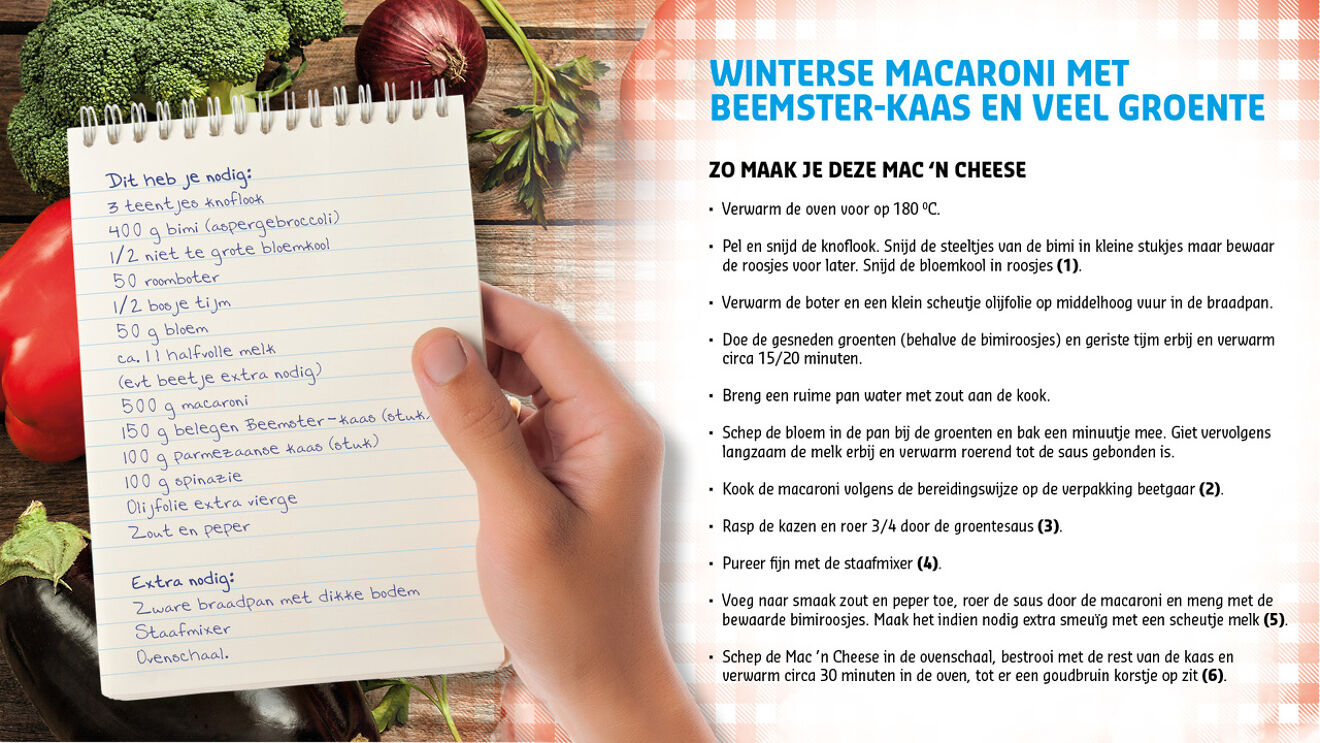 Dit heb je nodig:
3 teentjes knoflook
400 g bimi (aspergebroccoli)
1/2 niet te grote bloemkool
50 roomboter
1/2 bosje tijm
50 g bloem
ca. 1 l halfvolle melk
(evt beetje extra nodig)
500 g macaroni
150 g belegen Beemster-kaas (stuk)
100 g parmezaanse kaas (stuk)
100 g spinazie
Olijfolie extra vierge
Zout en peper
Extra nodig:
Zware braadpan met dikke bodem
Staafmixer
Ovenschaal.
WINTERSE MACARONI MET
BEEMSTER-KAAS EN VEEL GROENTE
ZO MAAK JE DEZE MAC ‘N CHEESE
• Verwarm de oven voor op 180 ºC.
• Pel en snijd de knoflook. Snijd de steeltjes van de bimi in kleine stukjes maar bewaar
de roosjes voor later. Snijd de bloemkool in roosjes (1).
• Verwarm de boter en een klein scheutje olijfolie op middelhoog vuur in de braadpan.
• Doe de gesneden groenten (behalve de bimiroosjes) en geriste tijm erbij en verwarm
circa 15/20 minuten.
• Breng een ruime pan water met zout aan de kook.
• Schep de bloem in de pan bij de groenten en bak een minuutje mee. Giet vervolgens
langzaam de melk erbij en verwarm roerend tot de saus gebonden is.
• Kook de macaroni volgens de bereidingswijze op de verpakking beetgaar (2).
• Rasp de kazen en roer 3/4 door de groentesaus (3).
• Pureer fijn met de staafmixer (4).
• Voeg naar smaak zout en peper toe, roer de saus door de macaroni en meng met de
bewaarde bimiroosjes. Maak het indien nodig extra smeuïg met een scheutje melk (5).
• Schep de Mac ’n Cheese in de ovenschaal, bestrooi met de rest van de kaas en
verwarm circa 30 minuten in de oven, tot er een goudbruin korstje op zit (6).